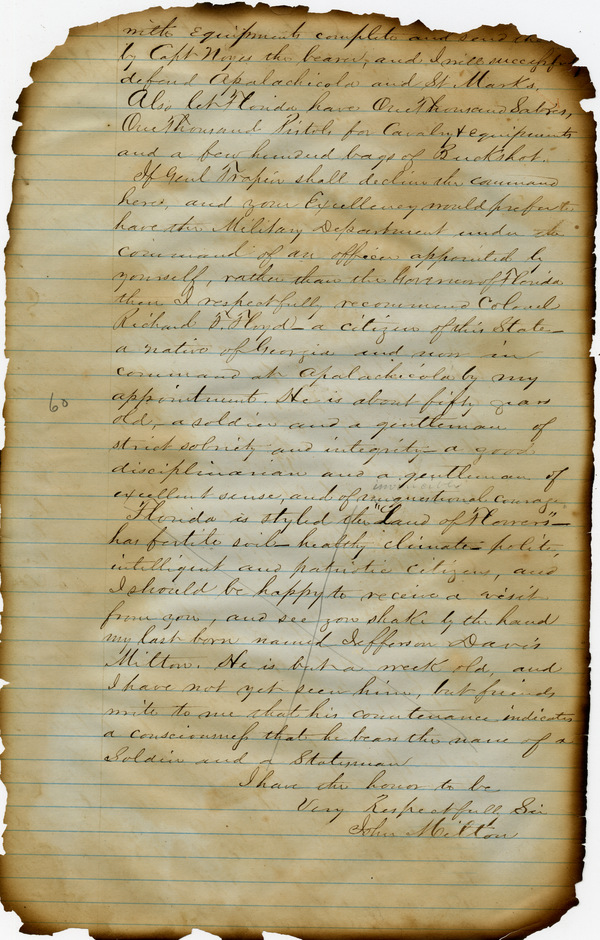 with Equipments complete and send
by Capt Noyes the bearer, and I will successfully
defend Apalachicola and St Marks.
Also let Florida have One Thousand Sabres,
One Thousand Pistols for Cavalry & equipments
and a few hundred bags of Buckshot.
If Genl Trapier shall decline the command
here, and your Excellency would prefer to
have the Military Department under the
command of an officer appointed by
yourself, rather than the Governor of Florida
then I respectfully recommend Colonel
Richard F. Floyd - a citizen of this State -
a native of Georgia and now in
command at Apalachicola by my
appointment. He is about fifty years
old, - a soldier and a gentleman of
strict sobriety and integrity - a good
disciplinarian and a gentleman of
excellent sense, and of unquestional courage
Florida is styled the "Land of Flowers" -
has fertile soil - healthy climate - polite,
intelligent and patriotic citizens, and
I should be happy to receive a visit
from you, and see you shake by the hand
my last born named Jefferson Davis
Milton. He is but a week old, and
I have not yet seen him, but friends
write to me that his countenance indicates
a consciousness that he bears the name of a
Soldier and a Statesman
I have the honor to be
Very Respectfully Sir
John Milton
60